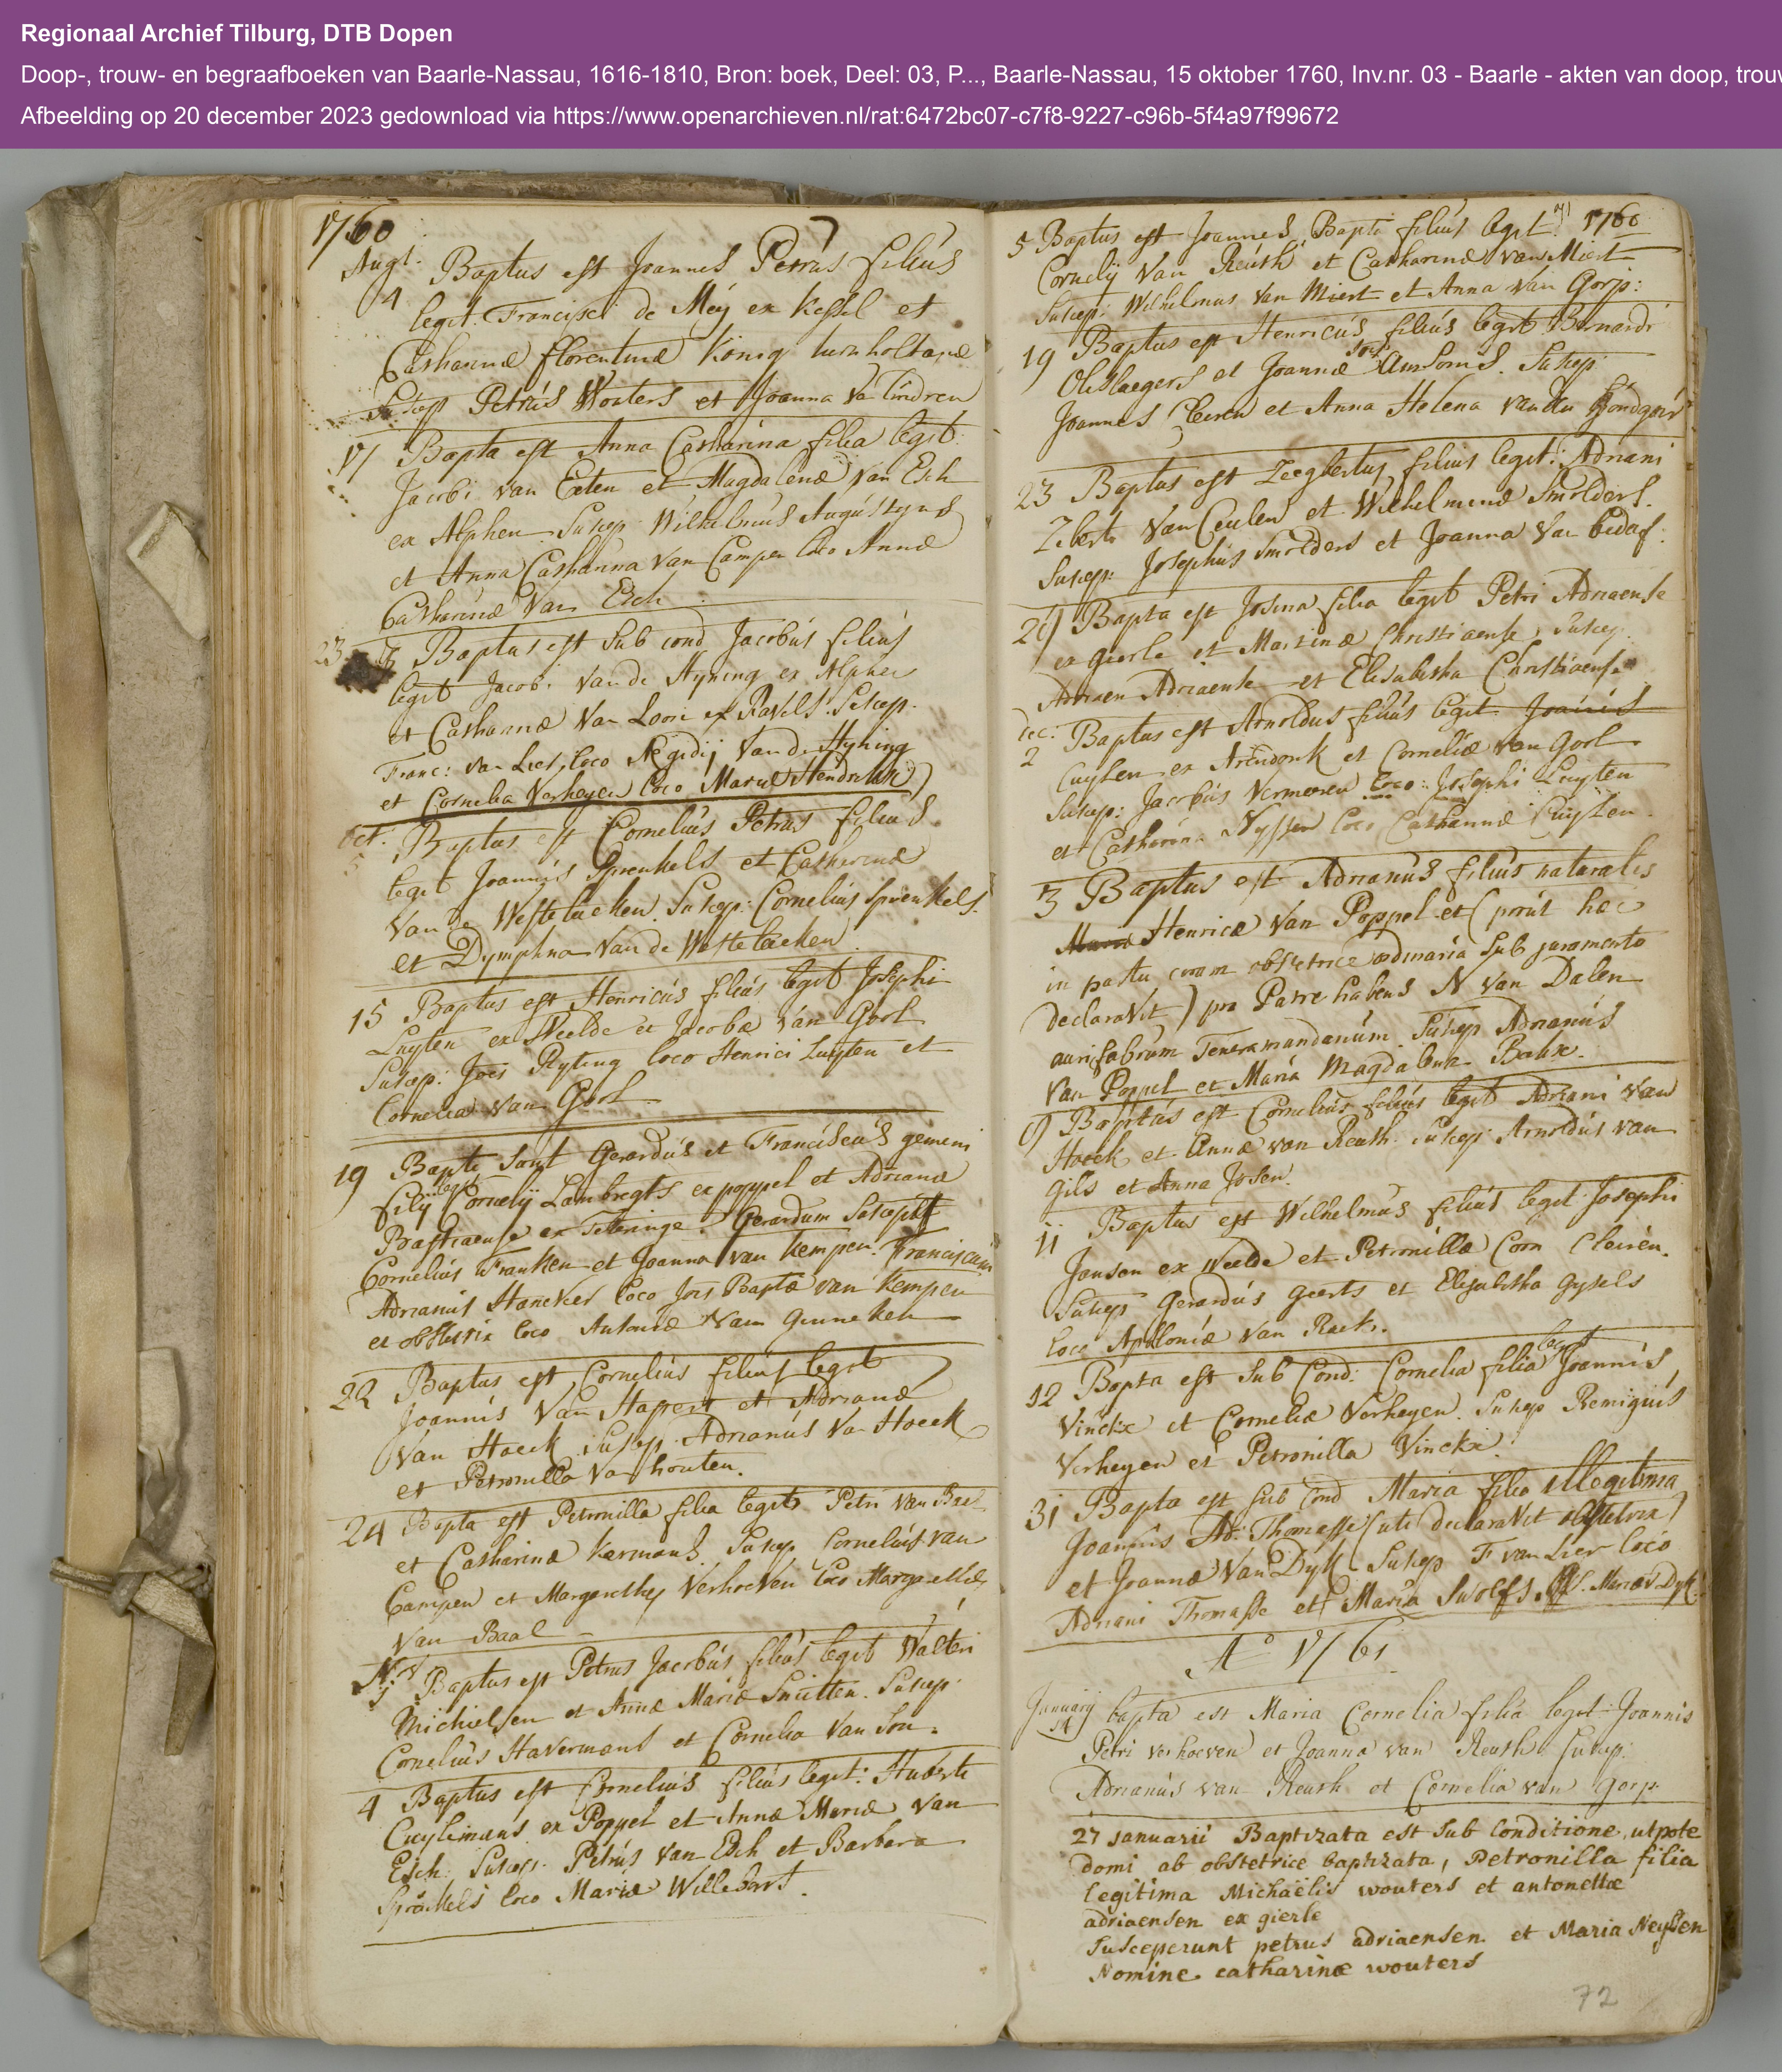 Regionaal Archief Tilburg, DTB Dopen
Doop-, trouw- en begraafboeken van Baarle-Nassau, 1616-1810, Bron: boek, Deel: 03, P..., Baarle-Nassau, 15 oktober 1760, Inv.nr. 03 - Baarle - akten van doop, trouw
Afbeelding op 20 december 2023 gedownload via https://www.openarchieven.nl/rat:6472bc07-c7f8-9227-c96b-5f4a97f99672
1760
Augt. Baptus est Joannes Petrus filius
4 legit. Francisci de Meij ex Kessel et
Catharinæ florentinæ Konig turnholtanæ
Suscep Petrus Wouters et Joanna Va Lindren
17 Bapta est Anna Catharina filia legit.
Jacobi van Eeten et Magdalenæ Van Esch
ex Alphen. Suscep. Wilhelmus Augustyns
et Anna Catharina Van Campen loco Annæ
Catharinæ Van Esch
23 Baptus est sub cond Jacobus filius
legit Jacobi Van de Hyning ex Alphen
et Catharinæ Van Loon ex Ravels. Suscep.
Franc: Van Lier, loco Ægidij Van de Hyning
et Cornelia Verheyen loco Mariæ Hendrikx
Oct. Baptus est Cornelius Petrus filius
5 legit Joannis Sprenkels et Catharinæ
Van de Westelaeken. Suscep: Cornelius Sprenkels.
et Dymphna Van de Westelaeken.
15 Baptus est Henricus filius legit Josephi
Luyten ex Weelde et Jacobæ Van Gorl
Suscep: Joes Ryting loco Henrici Luyten et
Cornelia Van Gorl
19 Bapti sunt Gerardus et Franciscus gemeni
filij legit Cornelij Lambregts ex poppel et Adrianæ
Bastiaense ex Teteringe. Gerardum Suscepit
Cornelius Franken et Joanna van Kempen. Franciscum
Adrianus Hanckes loco Jois Baptæ van Kempen
et obstetrix loco Antoniæ Van Genneken
22 Baptus est Cornelius filius legit
Joannis Van Hapert et Adrianæ
Van Hoeck Suscep. Adrianus Va Hoeck
et Petronilla Va houten.
24 Bapta est Petronilla filia legit Petri Van Bael
et Catharinæ Kermans. Suscep Cornelius van
Campen et Margaretha Verhoeven loco Margarethæ
Van Baal
Nov
j Baptus est Petrus Jacobus filius legit Walteri
Michielsen et Annæ Mariæ Smitten. Suscep.
Cornelius Havermans et Cornelia Van Son.
4 Baptus est Cornelius filius legit: Huberti
Cuylimans ex Poppel et Annæ Mariæ Van
Esch. Suscep. Petrus Van Esch et Barbara
loco Mariæ Willebort.
71 1760
5 Baptus est Joannes Bapti filius legit.
Cornelij Van Reuth et Catharinæ van Miert
Suscep: Wilhelmus Van Miert et Anna Van Gorp:
19 Baptus est Henricus filius legit Bernardi
Olislaegers et Joannæ Ansoms. Suscep
Joannes et Anna Helena Van den
23 Baptus est Zeegbertus filius legit: Adriani
Van Ceulen et Wilhelminæ Smolders.
Suscep: Josephus Smolders et Joanna Van bedaf.
Bapta est Josina filia legit Petri Adriaense
ex gierle et Martinæ Christiaense, Suscep.
Adriaen Adriaense et Elisabetha Christiaense
Dec: Baptus est Arnoldus filius legit Joannis
2 Cuylen ex Arendonk et Corneliæ van Gorl
Suscep: Jacobus Vermeeren loco: Josephi Luyten
et Catharina Nyssen loco Catharinæ Cuylen.
3 Baptus est Adrianus filius naturalis
Mariæ Henricæ Van Poppel et (prout hæc
in partu coram obstetrice ordinaria sub juramento
declaravit) pro Patre habens N Van Dalen
aurifabrum Teneramundanum. Suscep Adrianus
Van Poppel et Maria Magdalena Baux.
9 Baptus est Cornelius filius legit Adriani Van
Hoeck et Annæ van Reuth. Suscep: Arnoldus van
Gils et Anna Josen.
11 Baptus est Wilhelmus filius legit Josephi
Jansen ex Weelde et Petronillæ Corn Cleiren.
Suscep Gerardus Geerts et Elisabetha Gysels
loco Apolloniæ Van Raek.
12 Bapta est sub Cond: Cornelia filia legit Joannis
Vinckx et Corneliæ Verheyen. Suscep Remigius
Verheyen et Petronilla Vinckx.
31 Bapta est sub cond Maria filia illegitima
Joannis Ad: Thomasse (uti declaravit obstetrix)
et Joannæ Van Dyk Suscep F van Lier loco
Adriani Thomasse et Maria Swolfs Mariæ V Dyk.
A° 1761
January
14 bapta est Maria Cornelia filia legit Joannis
Petri Verhoeven et Joanna van Reuth. Suscep:
Adrianus van Reuth et Cornelia van Gorp.
27 januarii Baptizata est sub Conditione, utpote
domi ab obstetrice baptizata, Petronilla filia
legitima Michaëlis wouters et antonettæ
adriaensen ex gierle
Susceperunt petrus adriaensen et Maria Neysen
Nomine catharinæ wouters
72